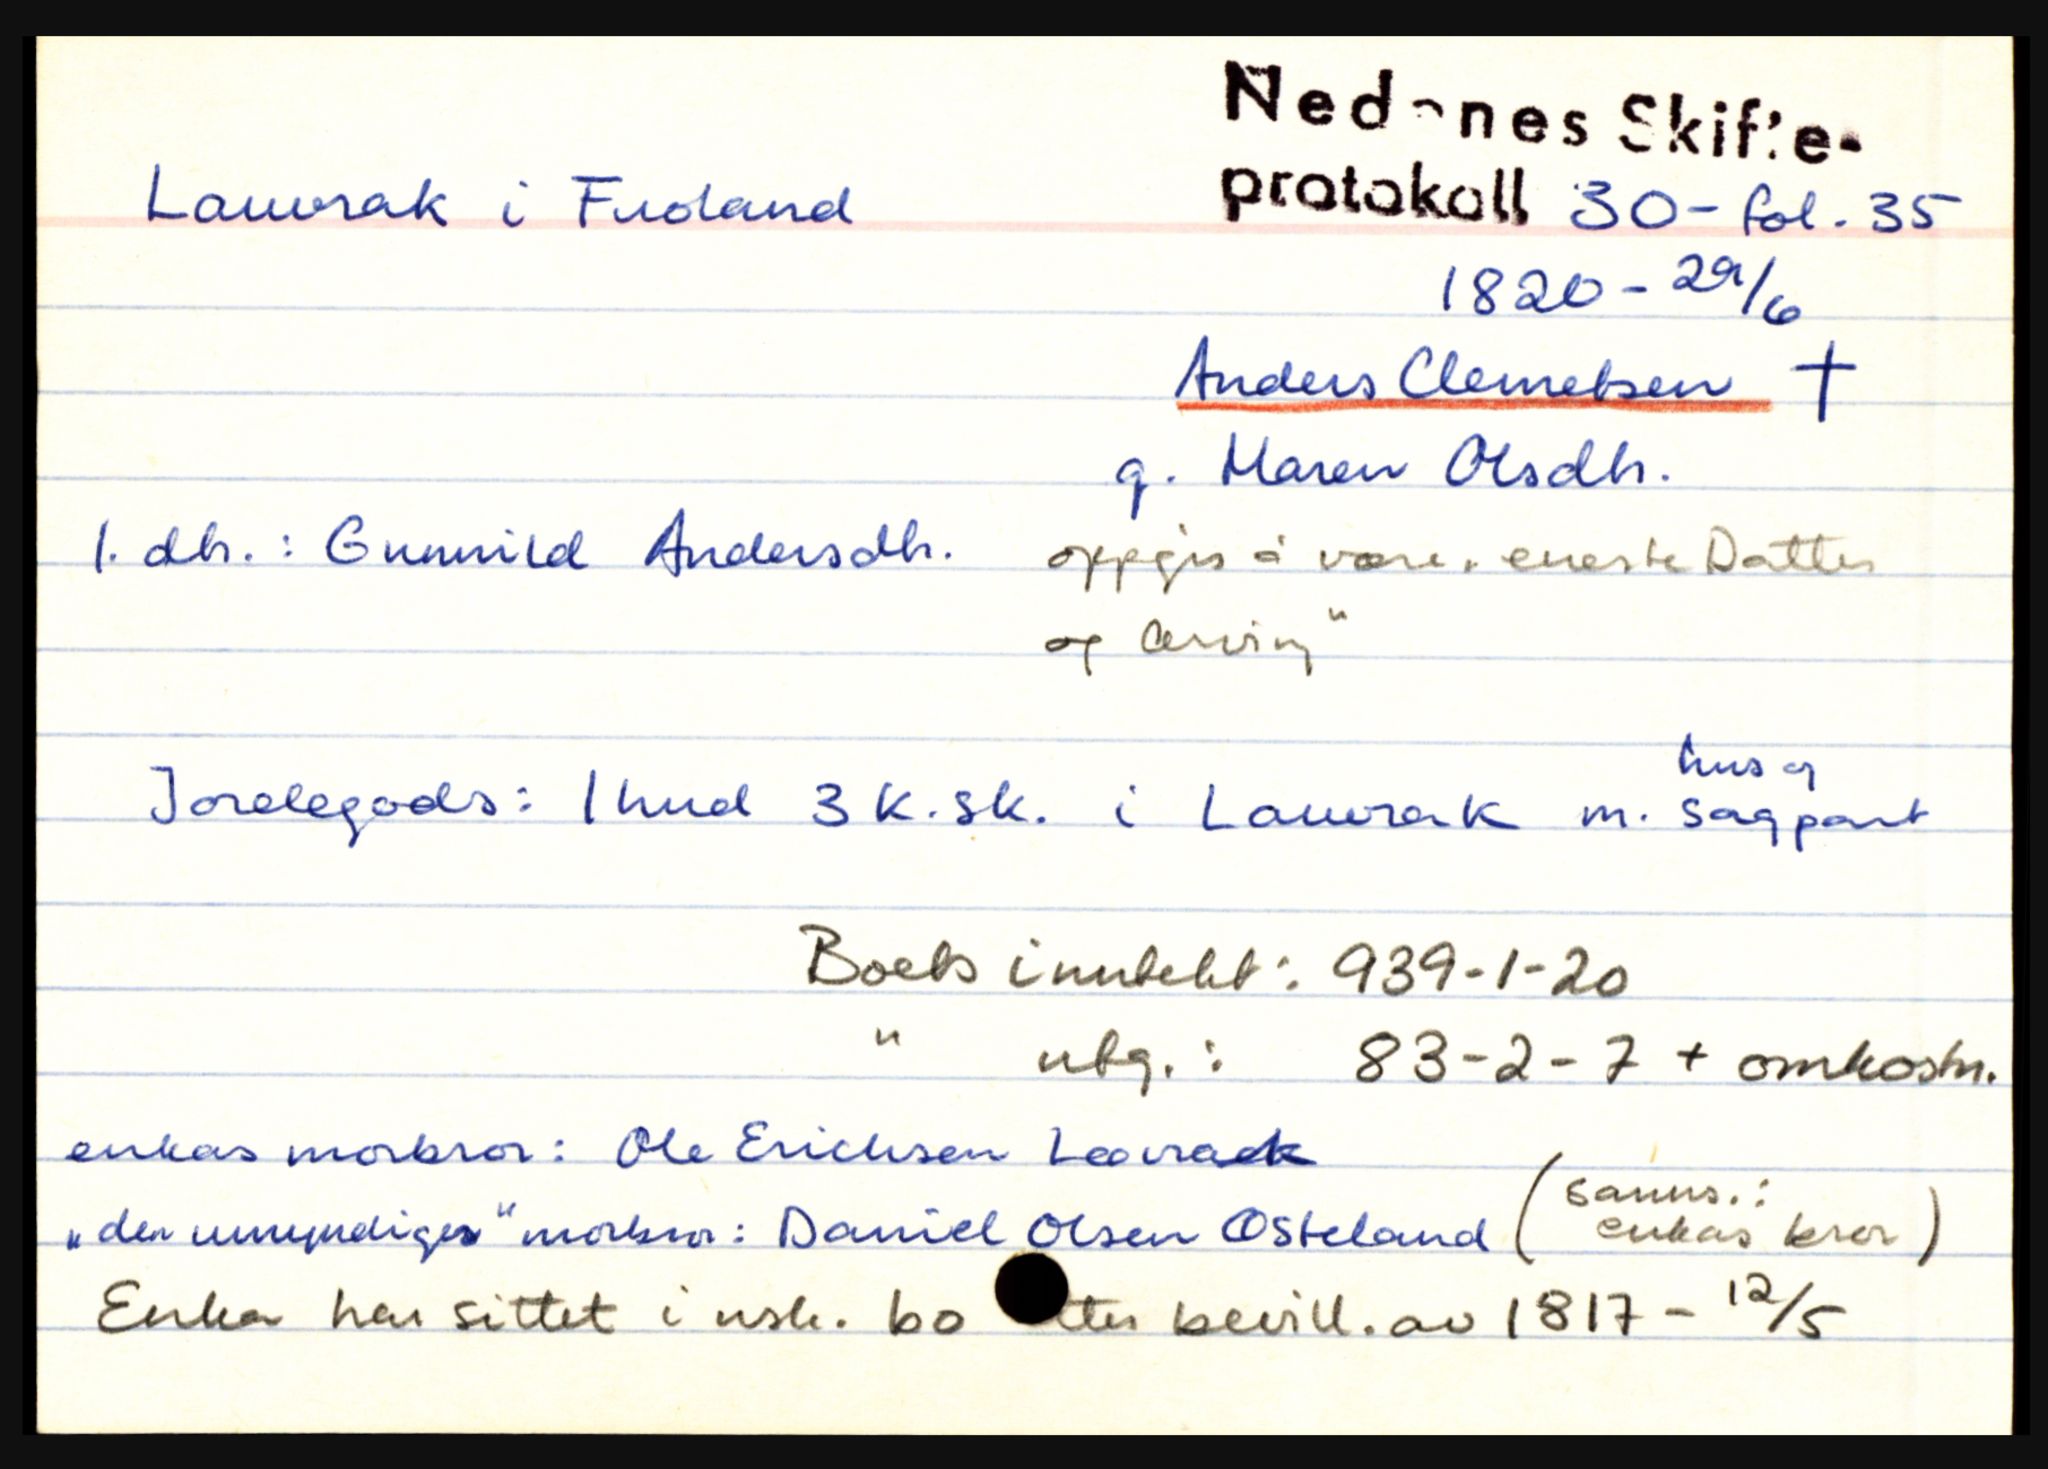 Nedenes Skifte-
protokoll 30 - fol. 35
Lauvrak i Froland
1820 - 29/6
Anders Clemetsen †
g. Maren Olsdtr.
1. dtr.: Gunnild Andersdtr. oppgis å være „eneste Datter
og Arving"
Jordegods: 1 hud 3 k.sk. i Lauvrak m. hus og
sagpart
Boets inntekt: 939-1-20
" utg.: 83-2-7 + omkostn.
enkas morbror: Ole Erichsen Lavrack
„den umyndiges" morbror: Daniel Olsen Osteland (sanns.:
enkas bror)
Enka har sittet i usk. bo etter bevill. av 1817 - 12/5